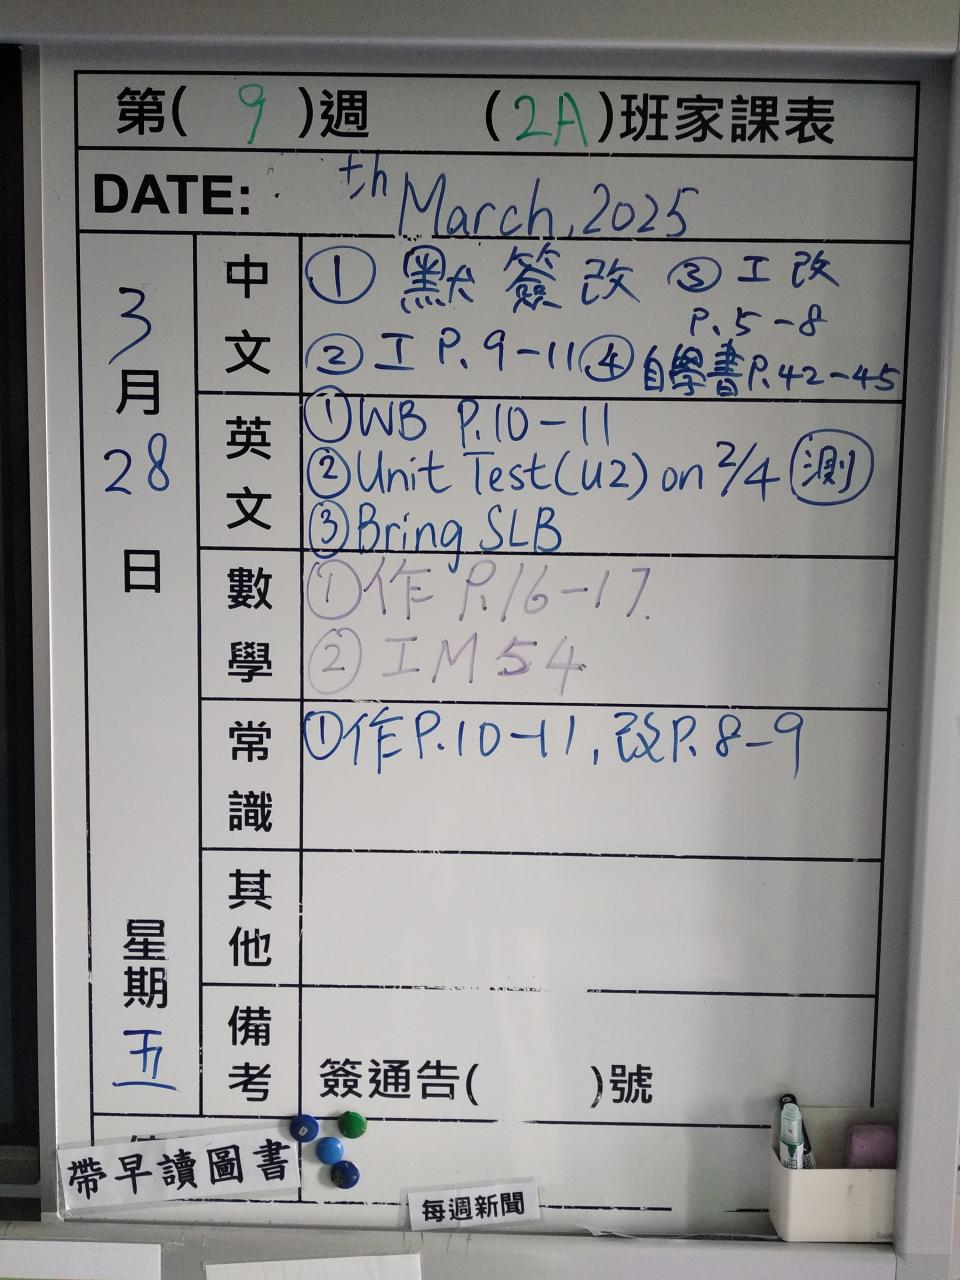 第( 9 )週 (2A)班家課表
DATE: th March, 2025
3
月
28
日
星
期
五
中
文
① 默 簽 改 ③ 工 改
P. 5-8
② 工 P. 9-11 ④ 自學書P.42-45
英
文
① WB P.10-11
② Unit Test (U2) on 2/4 測
③ Bring SLB
數
學
① 作 P.16-17.
② 工 M54
常
識
① 作P.10-11, 改P. 8-9
其
他
備
考
簽通告( )號
帶早讀圖書
每週新聞